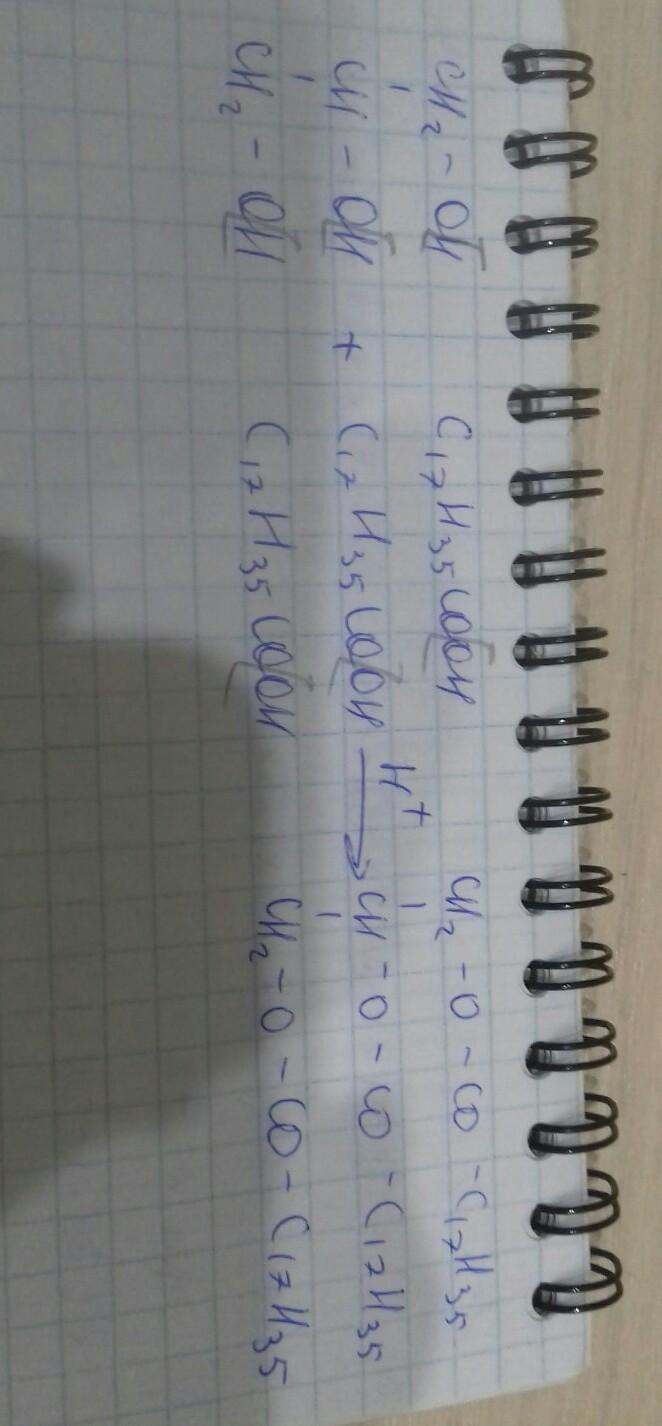 CH₂ - OH C₁₇H₃₅COOH CH₂ - O - CO - C₁₇H₃₅
CH - OH + C₁₇H₃₅COOH H⁺ → CH - O - CO - C₁₇H₃₅
CH₂ - OH C₁₇H₃₅COOH CH₂ - O - CO - C₁₇H₃₅